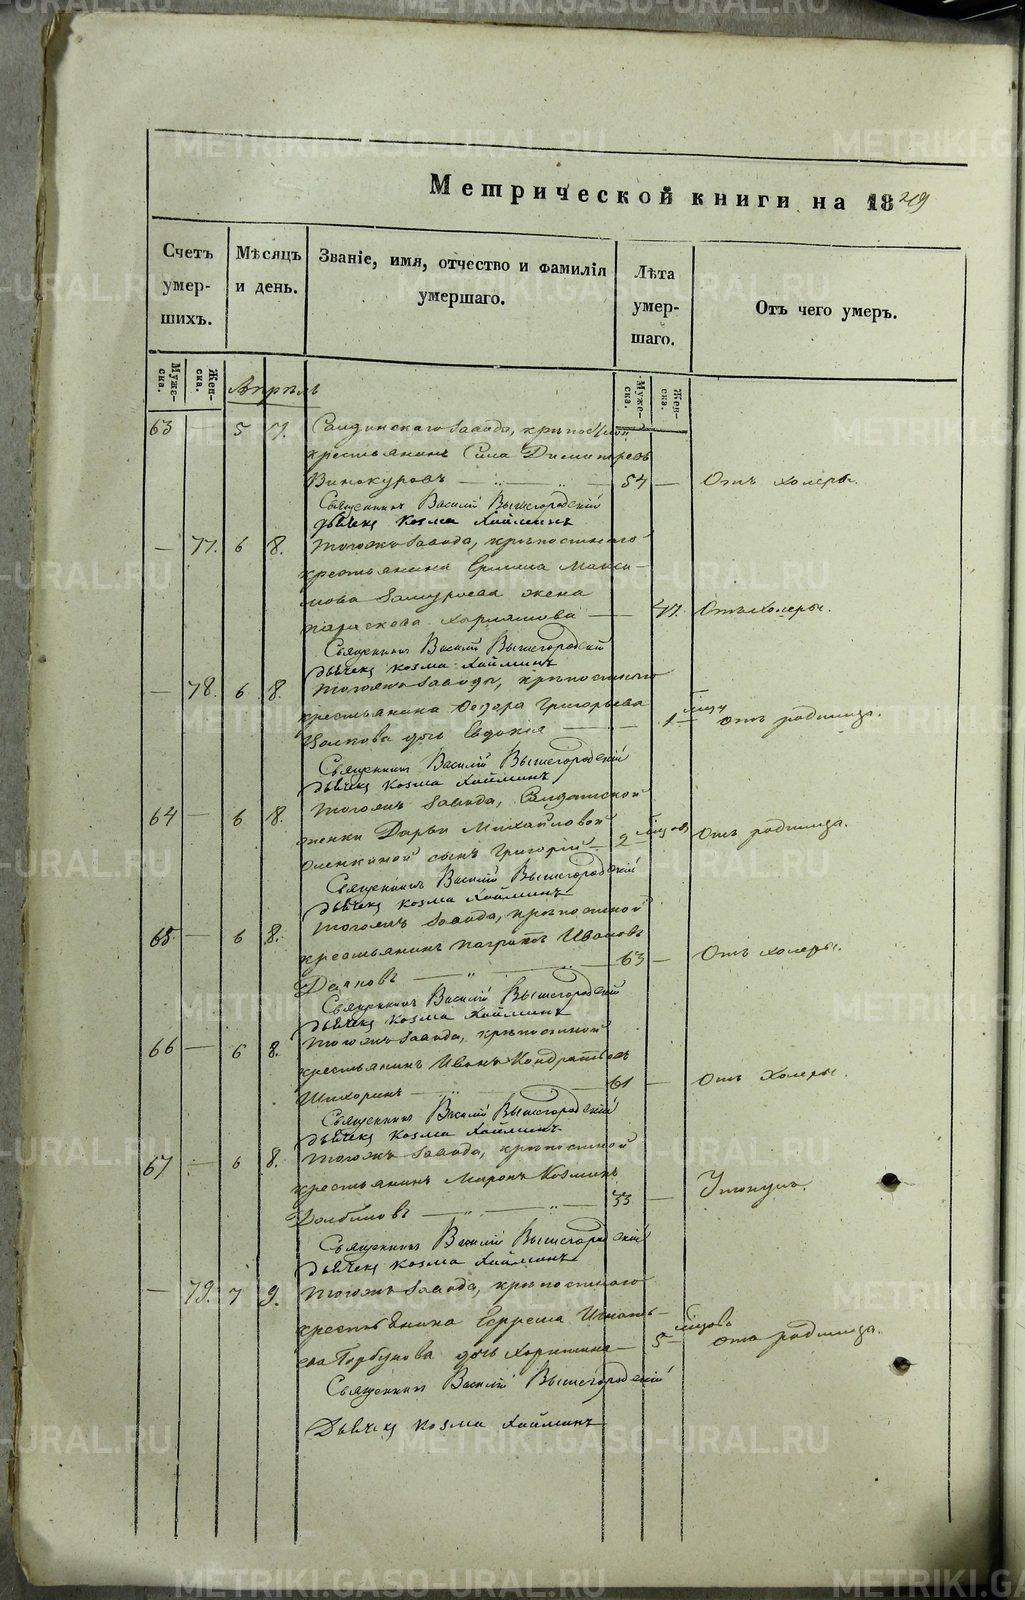 METRIKI.GASO-URAL.RU
Метрической книги на 1849
Счетъ умер-шихъ.
Мѣсяцъ и день.
Званіе, имя, отчество и фамилія умершаго.
Лѣта умер-шаго.
Отъ чего умеръ.
Муже-ска.
Жен-ска.
Апрѣль
Муже-ска.
Жен-ска.
63 — 5 7. Салдинскаго завода, крѣпостной
крестьянинъ Сила Димитревъ
Винокуровъ — 54 — Отъ холеры.
Священникъ Василій Вышегородскій
Дьячекъ Козма Хайминъ
— 77. 6 8. Тогожъ завода, крѣпостнаго
крестьянина Макси-
мова жена
Параскова — 47. Отъ холеры.
Священникъ Василій Вышегородскій
Дьячекъ Козма Хайминъ
— 78. 6 8. Тогожъ завода, крѣпостнаго
крестьянина Федора Григорьева
Волкова дочь Евдокія — 1 мцъ отъ родимца.
Священникъ Василій Вышегородскій
Дьячекъ Козма Хайминъ
64 — 6 8. Тогожъ завода, Солдатской
женки Дарьи Михайловой
сынъ Григорій — 2 мцовъ Отъ родимца.
Священникъ Василій Вышегородскій
Дьячекъ Козма Хайминъ
65 — 6 8. Тогожъ завода, крѣпостной
крестьянинъ Панратъ Ивановъ
— 63 — Отъ холеры.
Священникъ Василій Вышегородскій
Дьячекъ Козма Хайминъ
66 — 6 8. Тогожъ завода, крѣпостной
крестьянинъ Иванъ Кондратьевъ
Шихоринъ — 61 — Отъ Холеры.
Священникъ Василій Вышегородскій
Дьячекъ Козма Хайминъ
67 — 6 8. Тогожъ завода, крѣпостной
крестьянинъ Миронъ Козминъ
Долбиловъ — 33 — Утонулъ.
Священникъ Василій Вышегородскій
Дьячекъ Козма Хайминъ
— 79. 7 9. Тогожъ завода, крѣпостнаго
крестьянина Ефрема Игнать-
ева Горбунова дочь Харитина — 5 мцовъ отъ родимца.
Священникъ Василій Вышегородскій
Дьячекъ Козма Хайминъ